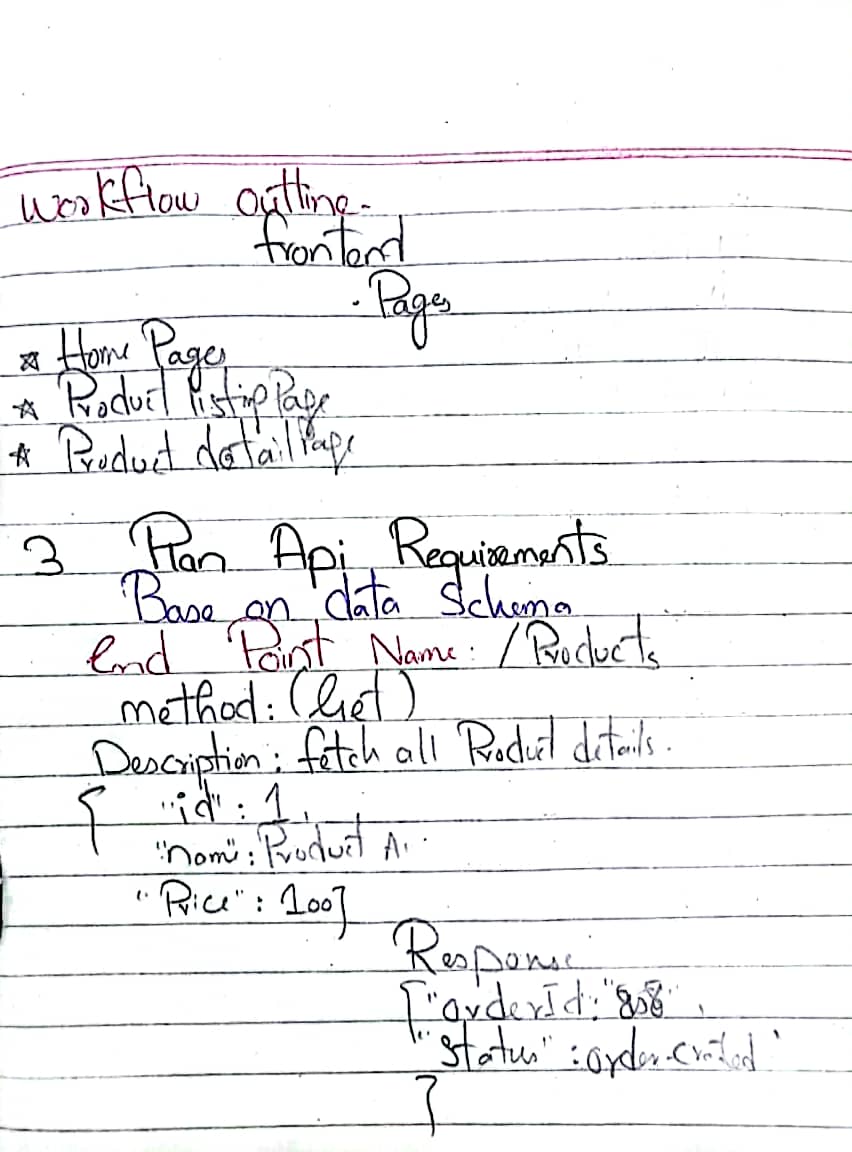 Workflow outline-
frontend
· Pages
☆ Home Pages
☆ Product listip Page
☆ Product detail Page
3 Plan Api Requirements
Base on data Schema
End Point Name: /Products
method: (Get)
Description: fetch all Product details.
{ "id": 1,
"nam": Product A.
"Price": 100}
Response
{"orderId: "808",
"Status" : order-created'
}